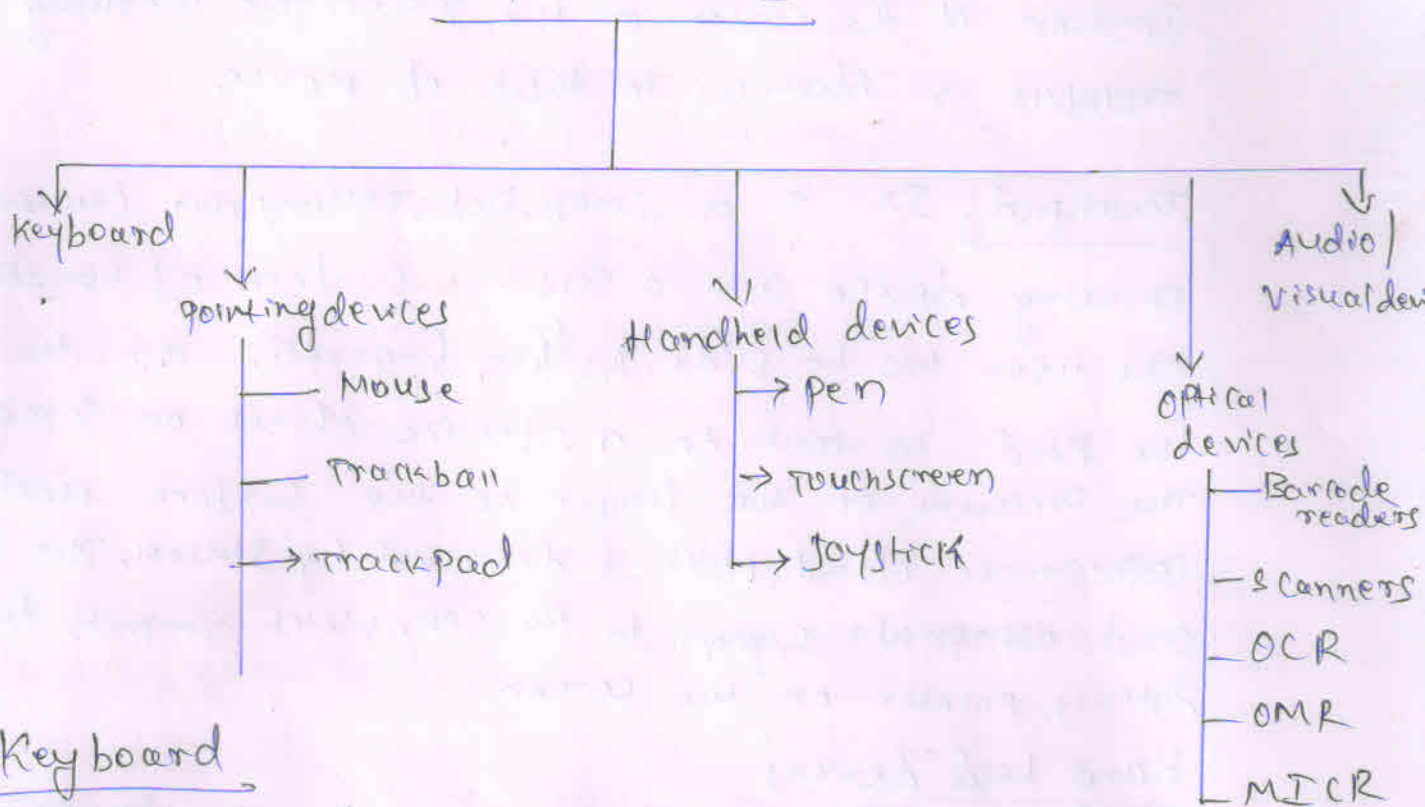 Keyboard
pointing devices
Mouse
Trackball
Trackpad
Handheld devices
Pen
Touchscreen
Joystick
Optical
devices
Barcode
readers
Scanners
OCR
OMR
MICR
Audio/
Visual devi
Keyboard